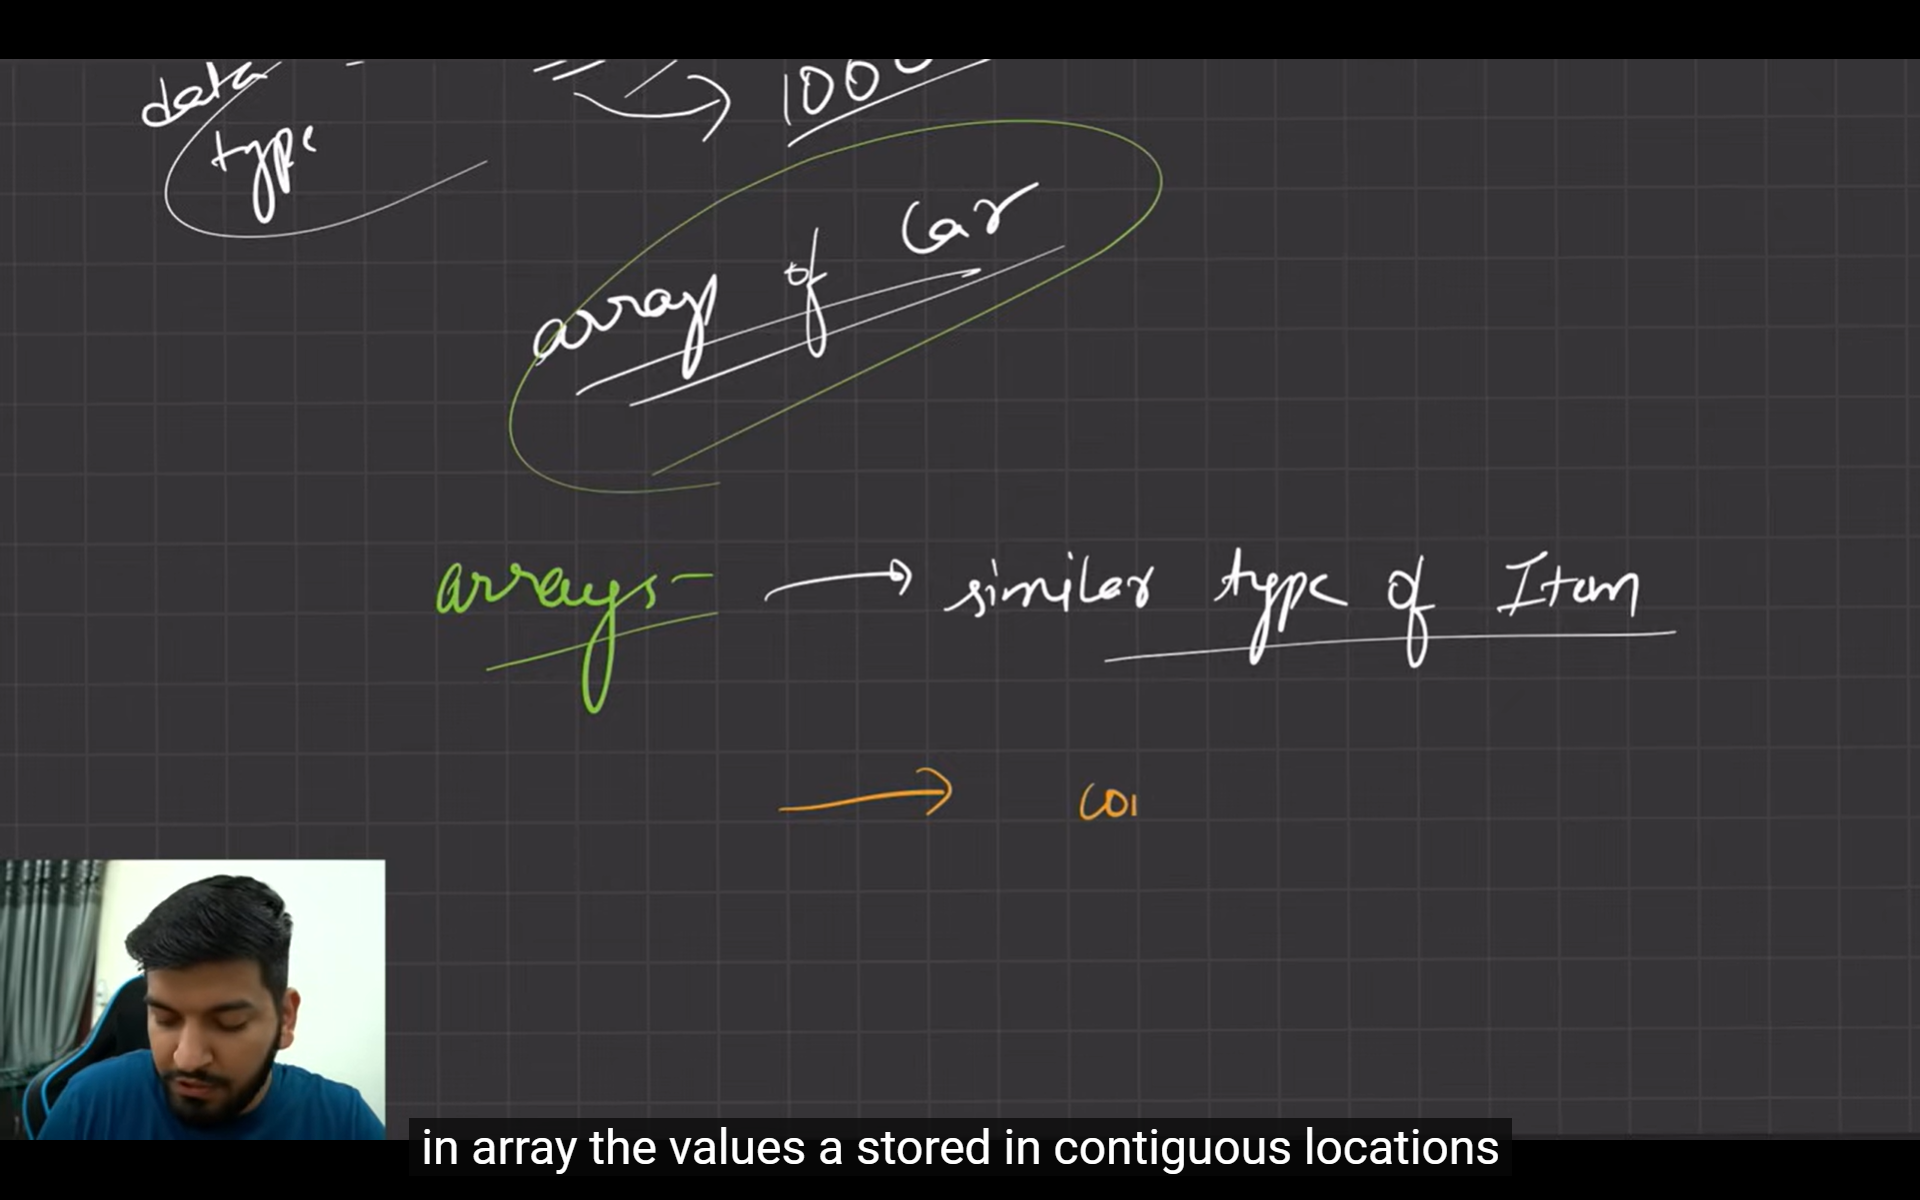 data
type
100
array of Car
arrays - similar type of Item
co
in array the values a stored in contiguous locations